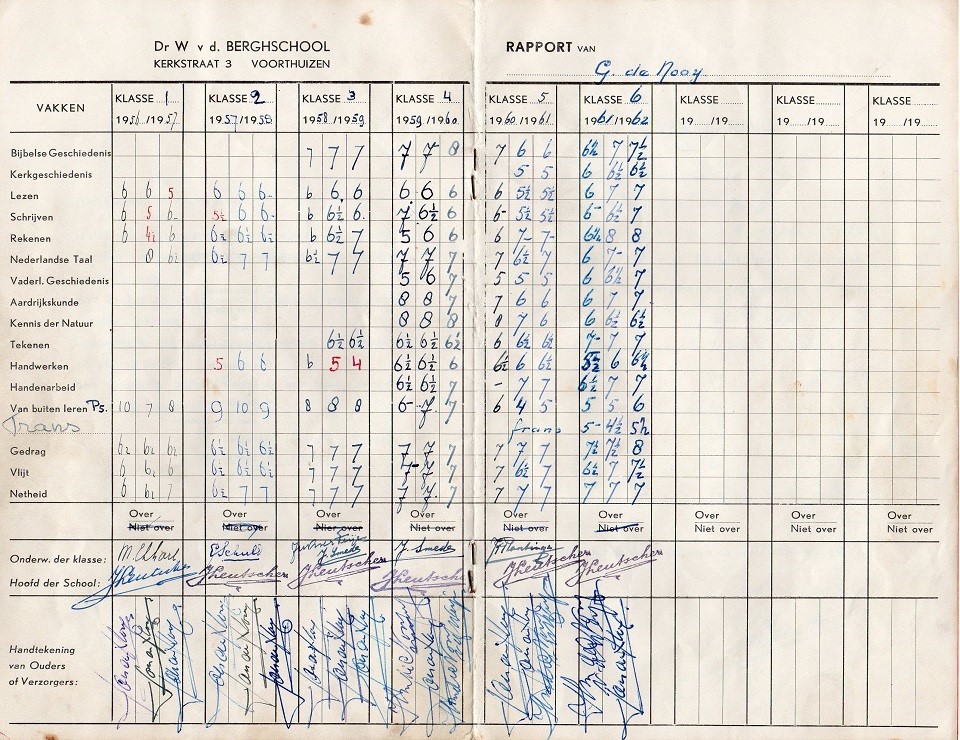 Dr W v d. BERGHSCHOOL
KERKSTRAAT 3 VOORTHUIZEN
RAPPORT VAN
G. de Nooy
VAKKEN KLASSE 1 KLASSE 2 KLASSE 3 KLASSE 4 KLASSE 5 KLASSE 6 KLASSE KLASSE KLASSE
1956/1957 1957/1958 1958/1959 1959/1960 1960/1961 1961/1962 19 /19 19 /19 19 /19
Bijbelse Geschiedenis 7 7 7 7 7 8 7 6 6 6½ 7 7½
Kerkgeschiedenis 5 5 6 6½ 6½
Lezen 6 6 5 6 6 6- 6 6 6 6 6 6 6 5½ 5½ 6 7 7
Schrijven 6 5 6- 5½ 6 6- 6 6½ 6 7 6½ 6 6- 5½ 5½ 6- 6½ 7
Rekenen 6 4½ 6 6½ 6½ 6½ 6 6½ 7 5 6 6 6 7- 7- 6½ 8 8
Nederlandse Taal 8 6½ 6½ 7 7 6½ 7 7 7 7 7 7 6½ 7 6 7- 7
Vaderl. Geschiedenis 5 6 7 5 5 5 6 6½ 7
Aardrijkskunde 8 8 7 7 6 6 6 7 7
Kennis der Natuur 8 8 8 8 7 6 6 6½ 6½
Tekenen 6½ 6½ 6½ 6½ 6½ 6 6½ 6½ 7- 7 7
Handwerken 5 6 6 6 5 4 6½ 6½ 6 6½ 6 6½ 5½ 6 6½
Handenarbeid 6½ 6½ 7 - 7 7 6½ 7 7
Van buiten leren Ps. 10 7 8 9 10 9 8 8 8 6- 7. 7 6 4 5 5 5 6
Frans frans 5- 4½ 5½
Gedrag 6½ 6½ 6½ 6½ 6½ 6½ 7 7 7 7 7 7 7 7 7 7½ 7½ 8
Vlijt 6 6½ 6 6½ 6½ 6½ 7 7 7 7- 7 7 7 6½ 7 6½ 7 7½
Netheid 6 6½ 7 6½ 7 7 7 7 7 7 7. 7 7 7 7 7 7 7
Over Over Over Over Over Over Over Over Over
Niet over Niet over Niet over Niet over Niet over Niet over Niet over Niet over Niet over
Onderw. der klasse: M Elhart E Schuld J. Smede J. Smede Plantinga
Hoofd der School: JHeutscher JHeutscher JHeutscher JHeutscher JHeutscher JHeutscher
Handtekening
van Ouders
of Verzorgers: